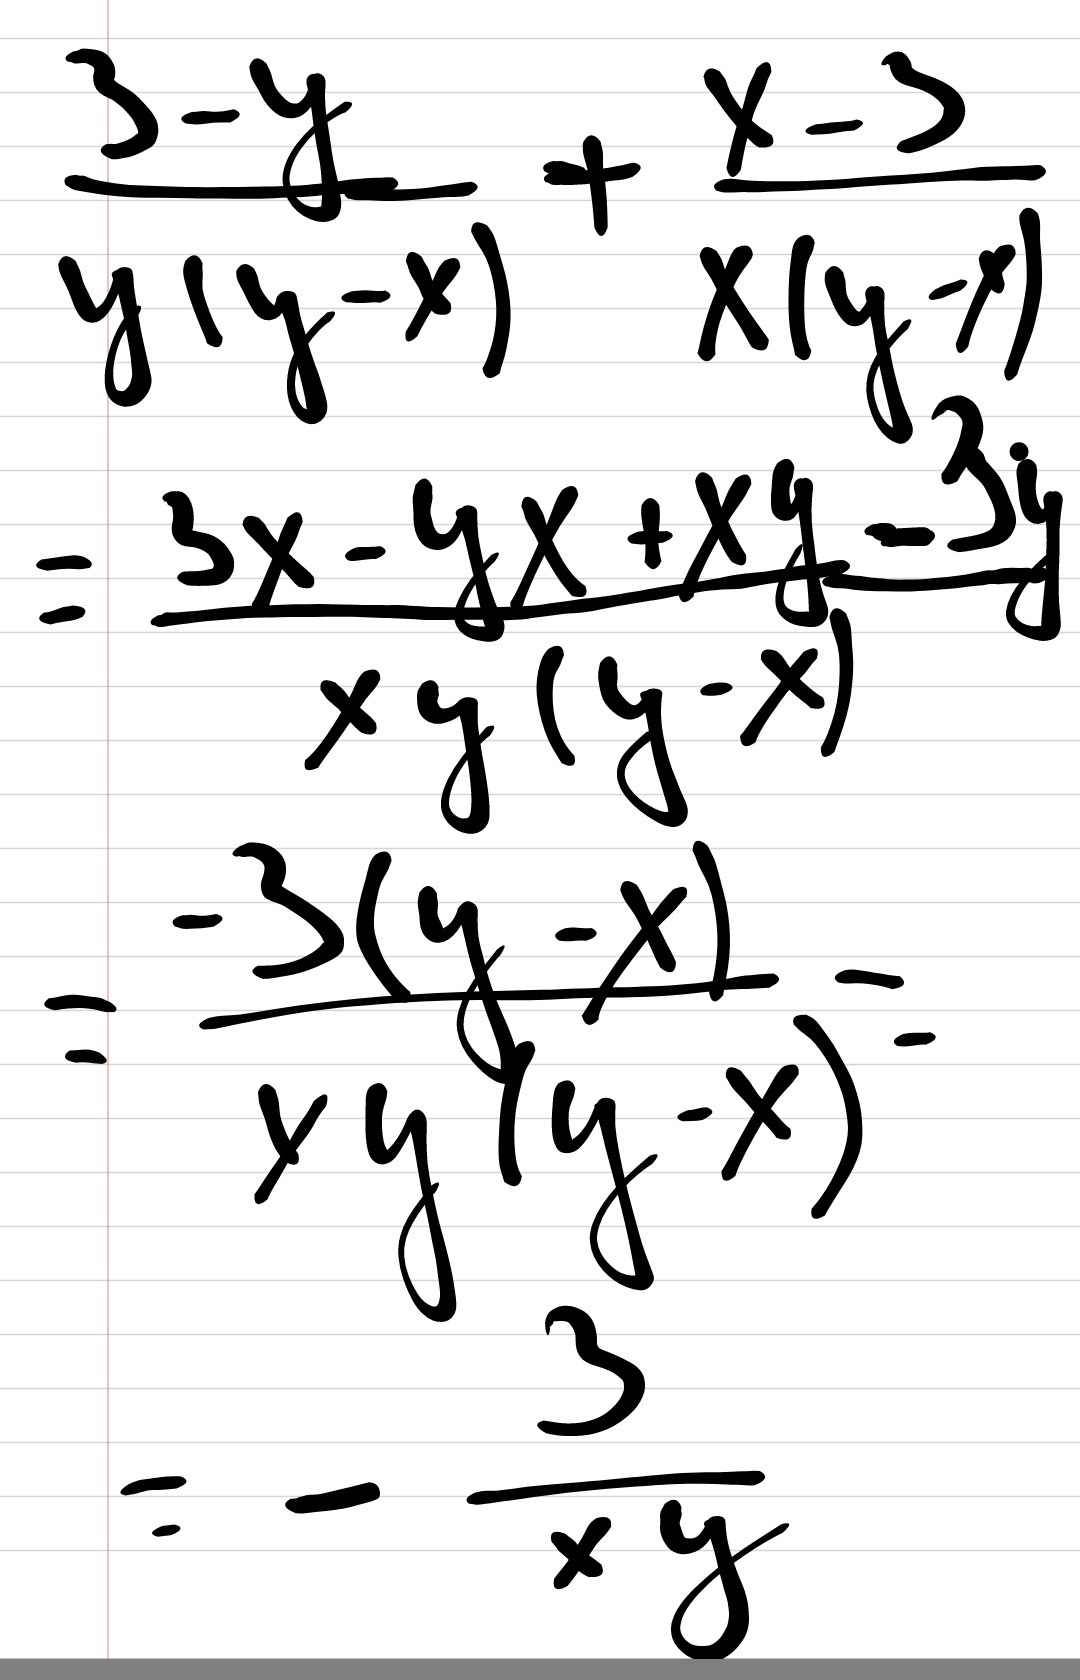 3-y/y(y-x) + x-3/x(y-x)
= 3x-yx+xy-3y/xy(y-x)
= -3(y-x)/xy(y-x) =
= - 3/xy